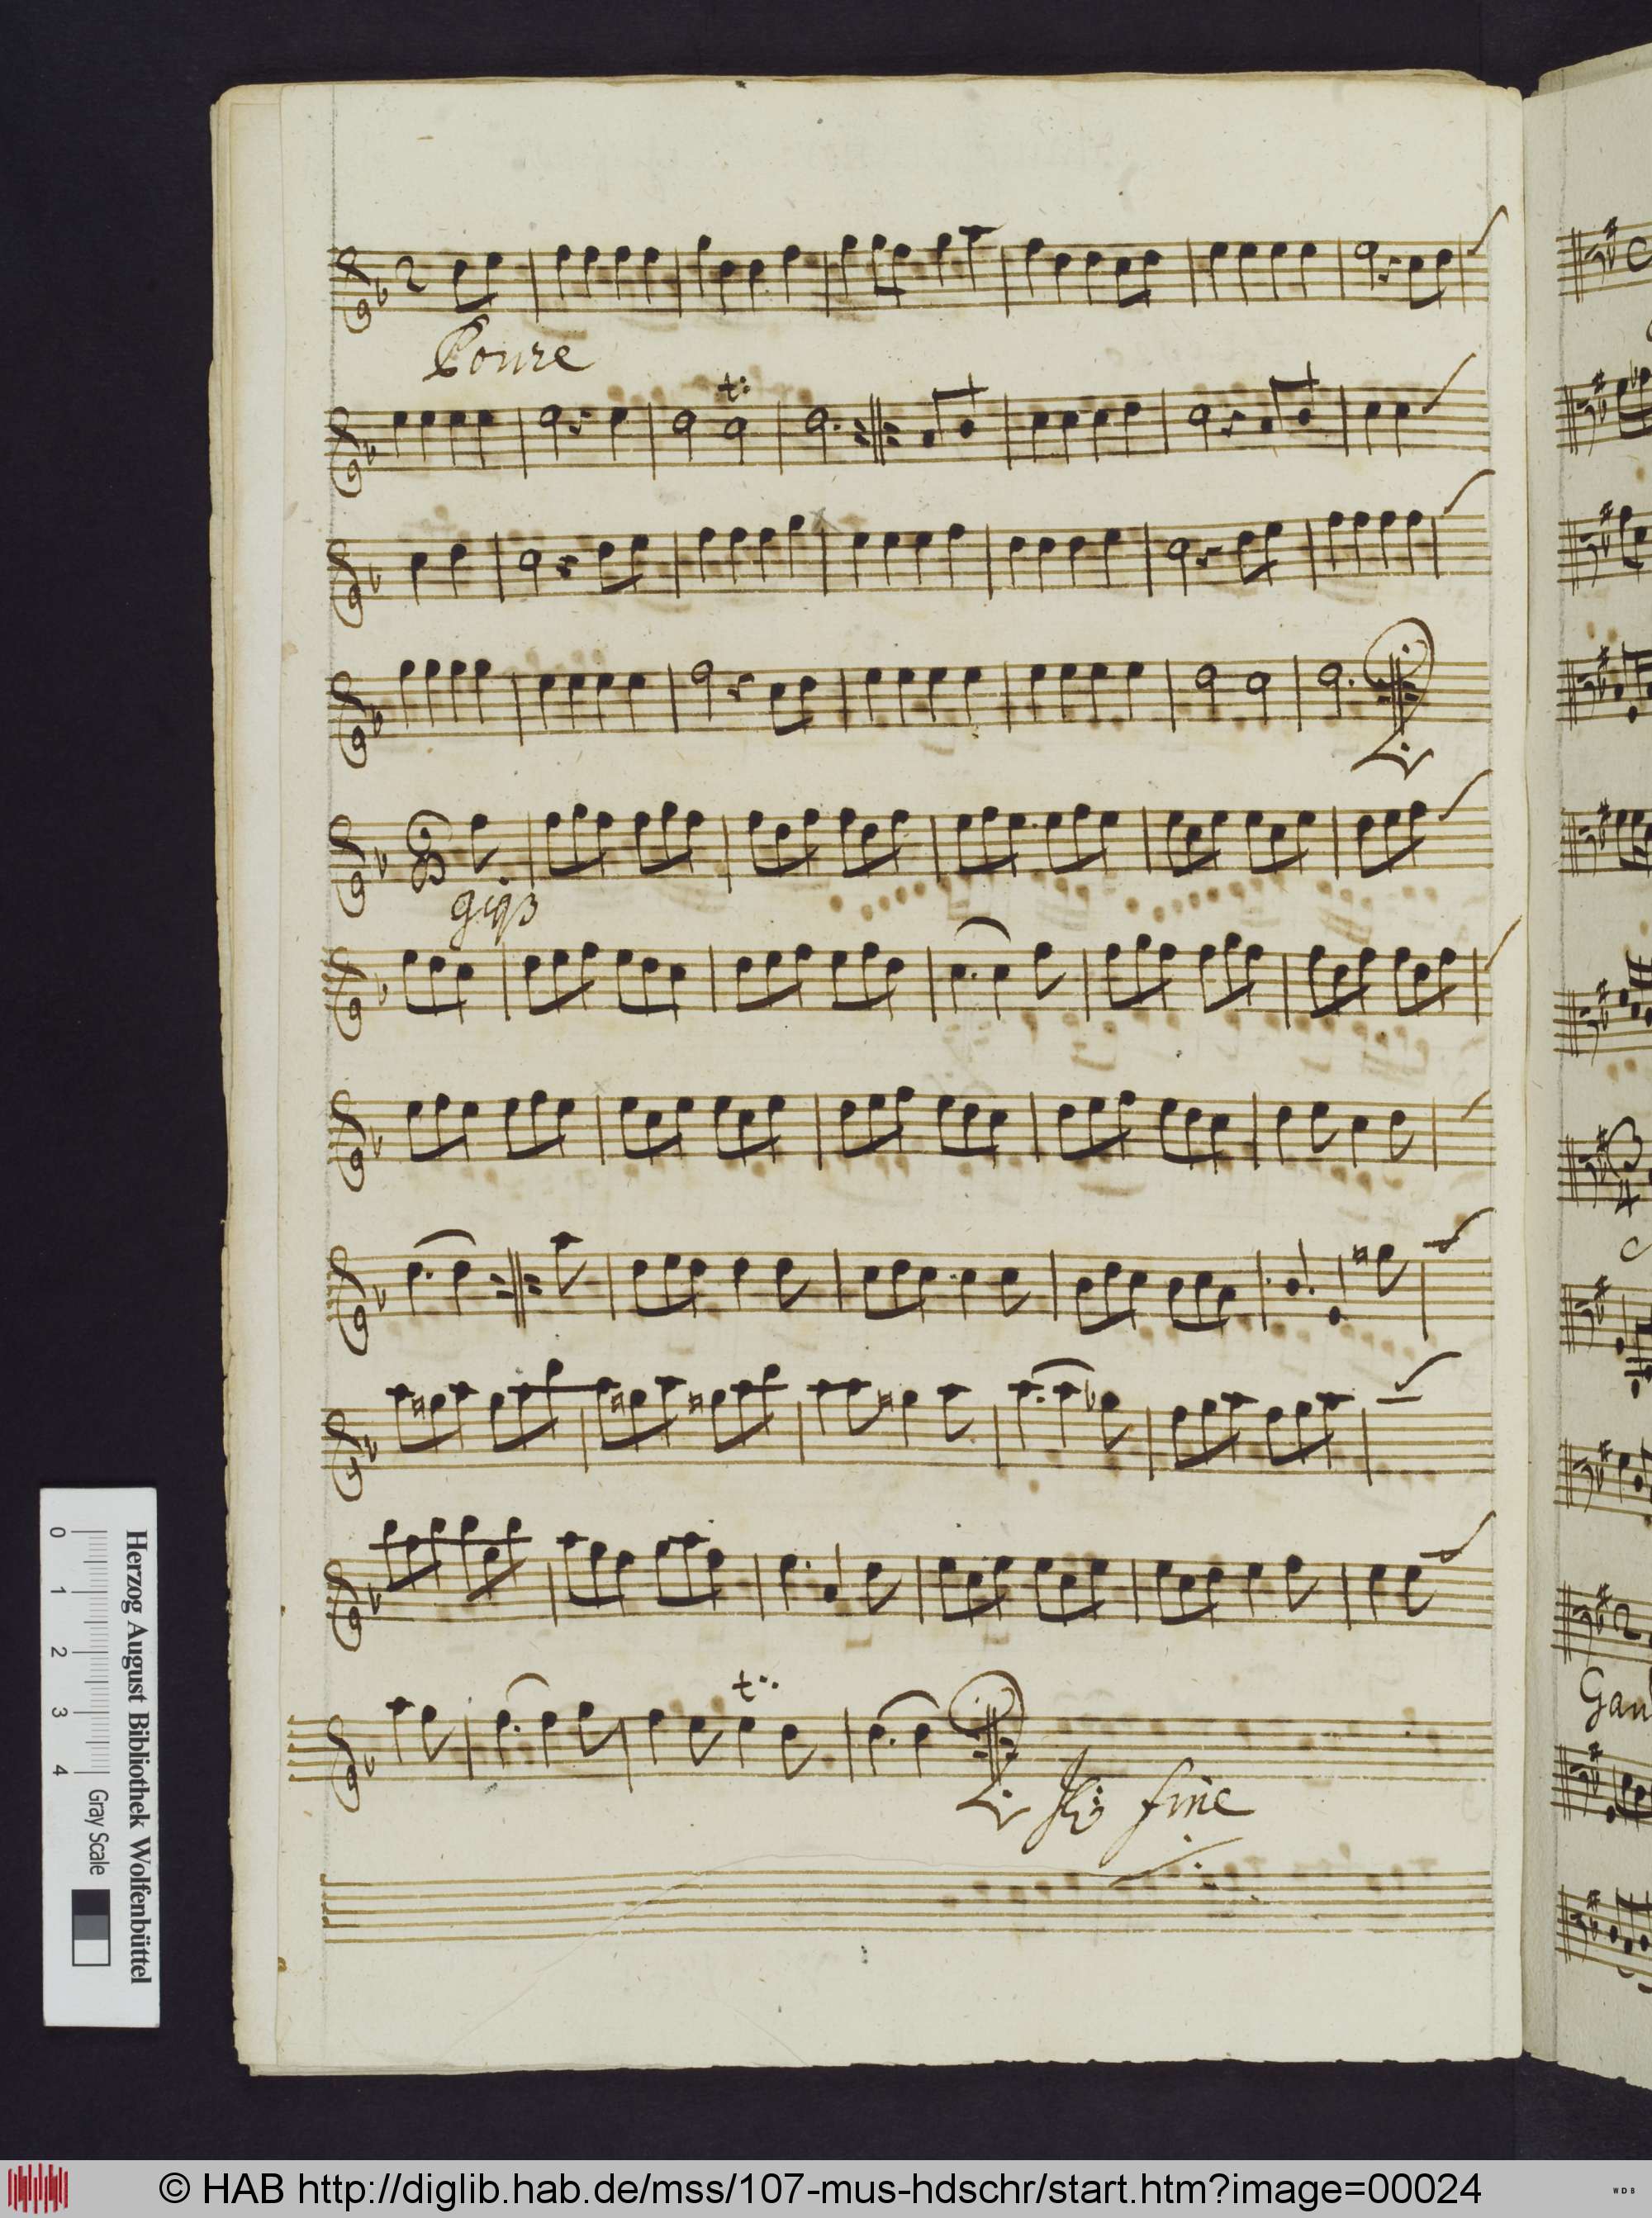 Boure
t:
giqß
t:
fine
Gau
Herzog August Bibliothek Wolfenbüttel
0 1 2 3 4
Gray Scale
© HAB http://diglib.hab.de/mss/107-mus-hdschr/start.htm?image=00024
WDB